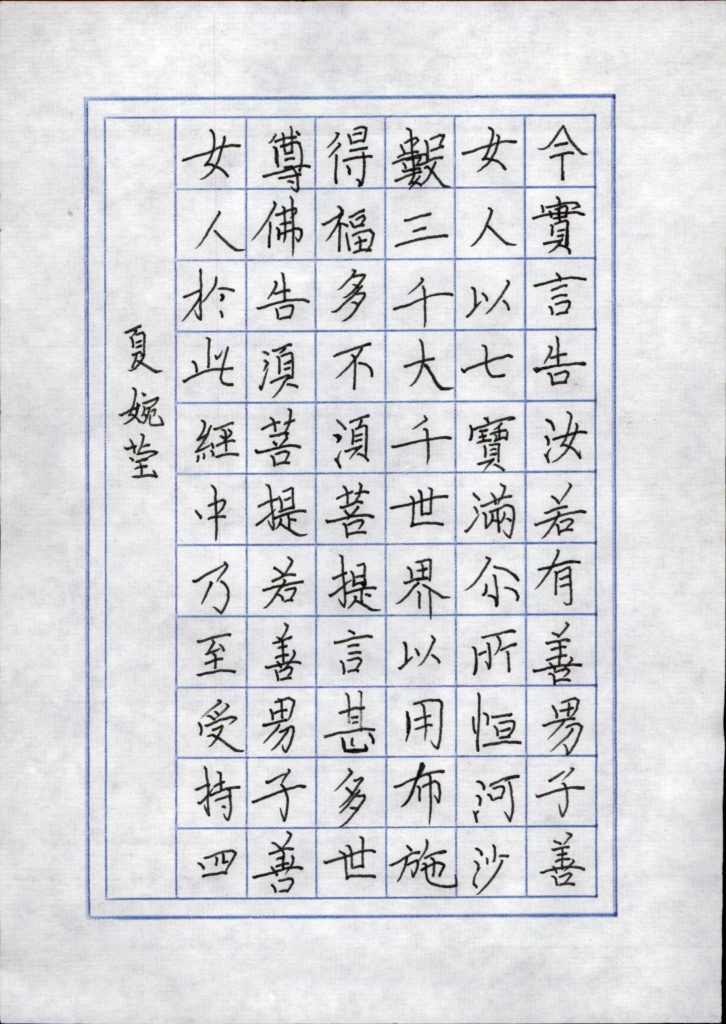 今實言告汝若有善男子善
女人以七寶滿尒所恒河沙
數三千大千世界以用布施
得福多不須菩提言甚多世
尊佛告須菩提若善男子善
女人於此經中乃至受持四
夏婉莹